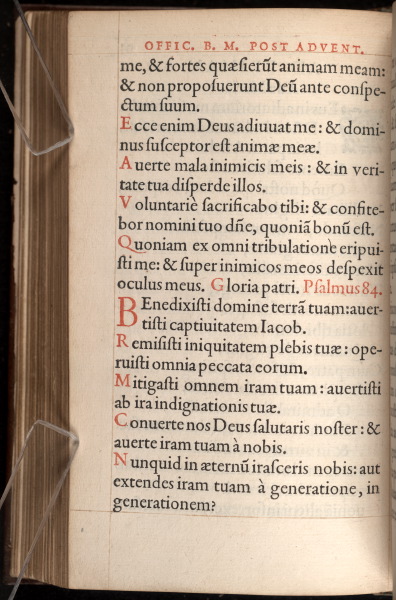 OFFIC. B. M. POST ADVENT.
me, & fortes quæsierūt animam meam:
& non proposuerunt Deū ante conspe-
ctum suum.
Ecce enim Deus adiuuat me : & domi-
nus susceptor est animæ meæ.
Auerte mala inimicis meis : & in veri-
tate tua disperde illos.
Voluntariè sacrificabo tibi: & confite-
bor nomini tuo dñe, quoniā bonū est.
Quoniam ex omni tribulatione eripui-
sti me: & super inimicos meos despexit
oculus meus. Gloria patri. Psalmus 84.
BEnedixisti domine terrā tuam: auer-
tisti captiuitatem Iacob.
Remisisti iniquitatem plebis tuæ : ope-
ruisti omnia peccata eorum.
Mitigasti omnem iram tuam : auertisti
ab ira indignationis tuæ.
Conuerte nos Deus salutaris noster : &
auerte iram tuam à nobis.
Nunquid in æternū irasceris nobis: aut
extendes iram tuam à generatione, in
generationem?